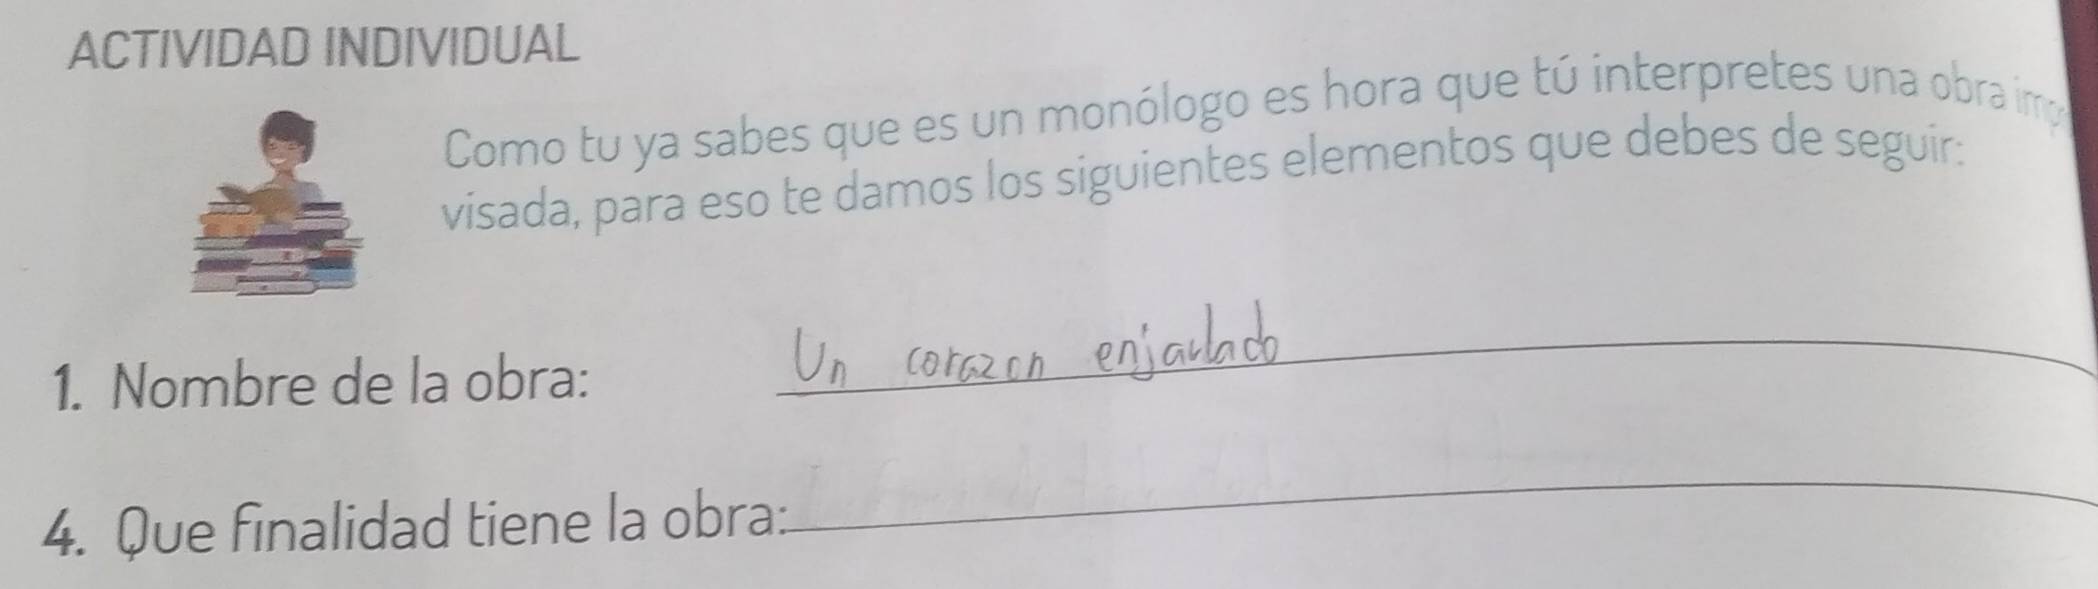 ACTIVIDAD INDIVIDUAL
Como tu ya sabes que es un monólogo es hora que tú interpretes una obra imp
visada, para eso te damos los siguientes elementos que debes de seguir:
1. Nombre de la obra: Un corazon enjaulado
4. Que finalidad tiene la obra: